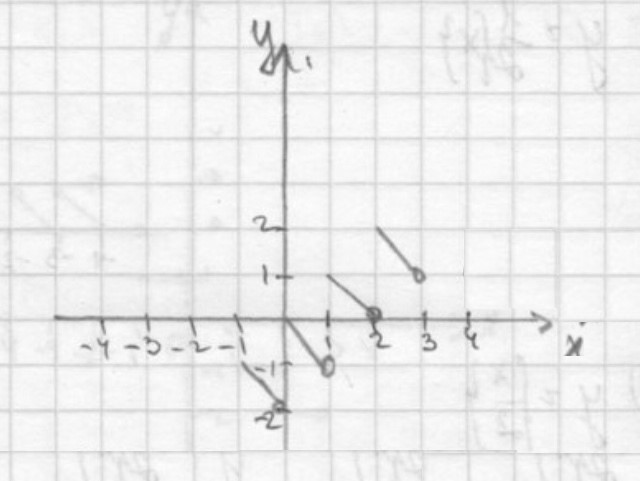 y
2
1
-4 -3 -2 -1 1 2 3 4 x
-1
-2